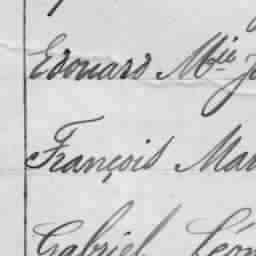 Edouard Mie J
François Mar
Gabriel Léon